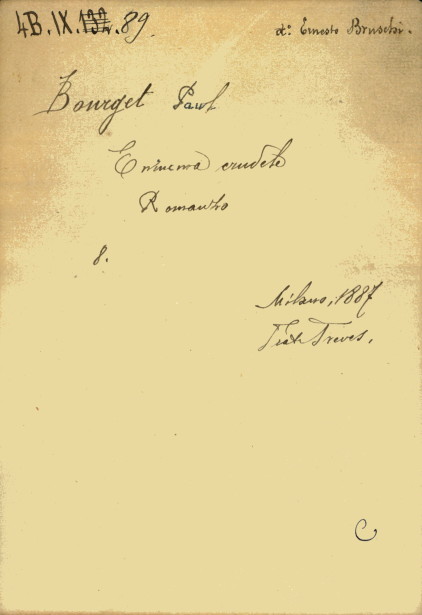 4B.IX.132.89.
d: Ernesto Bruschi.
Bourget Paul
Enimma crudele
Romanzo
8.
Milano, 1887
Frat. Treves.
C